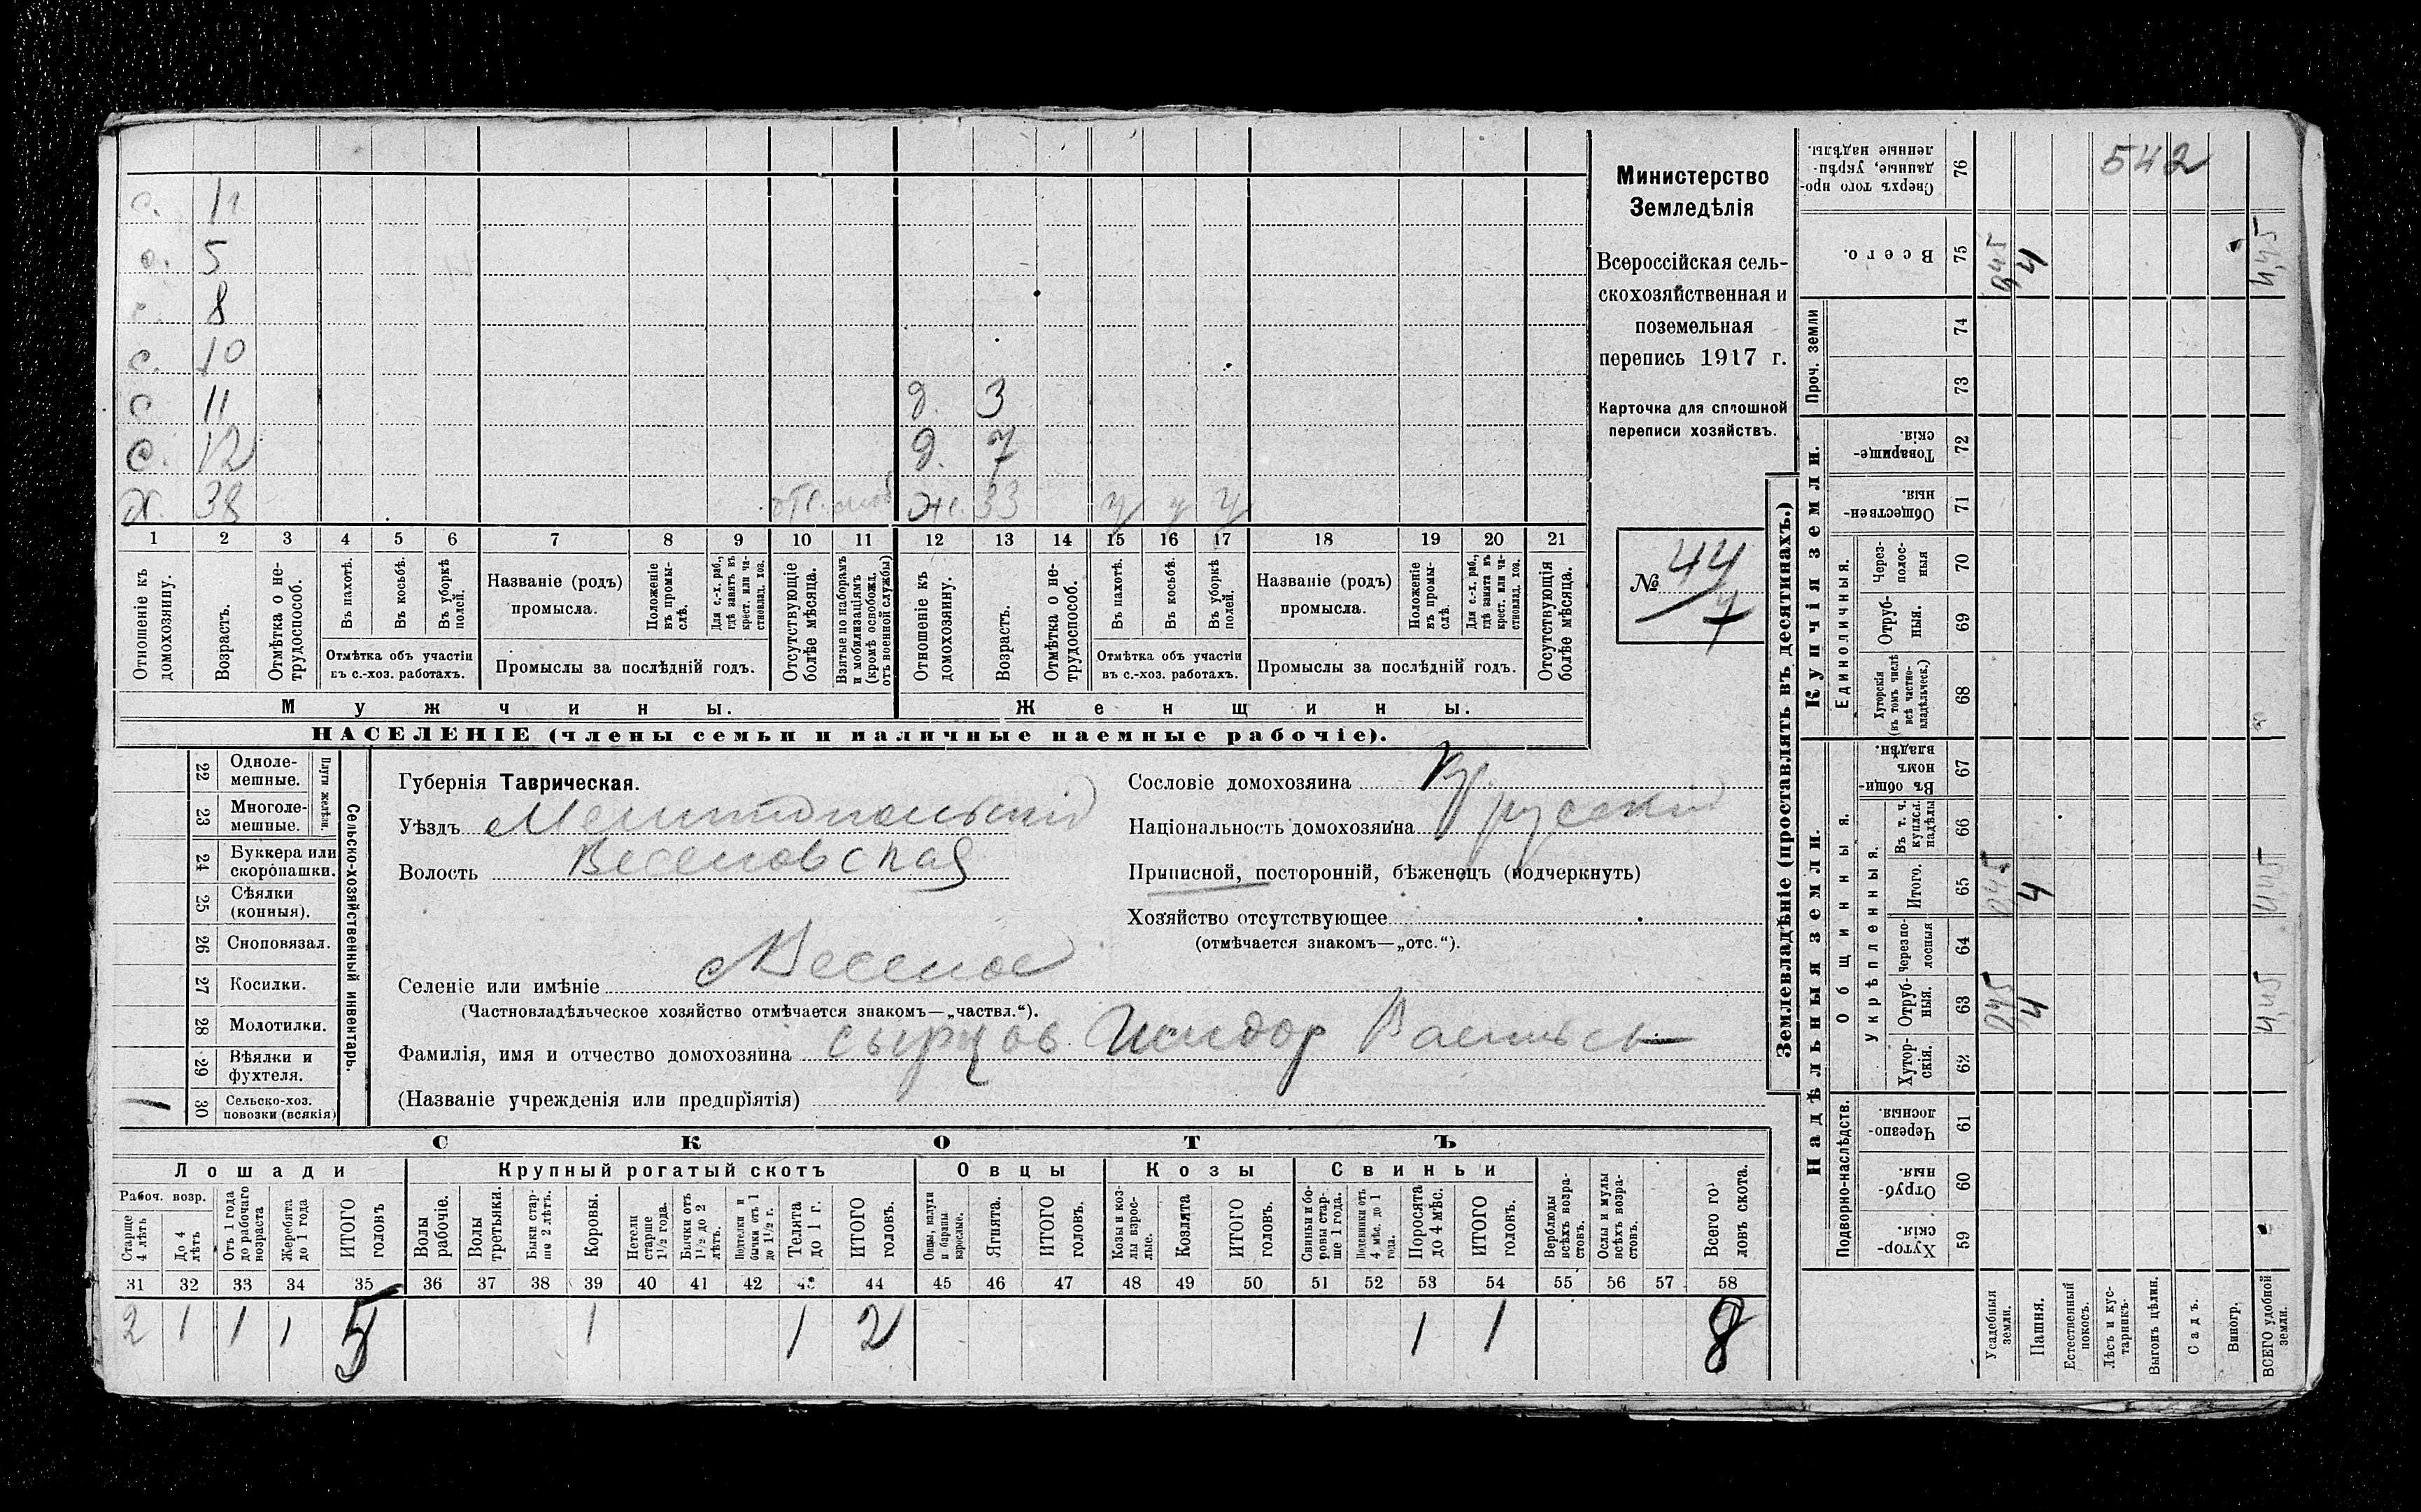 с. 11
с. 5
с. 8
с. 10
с 11 д. 3
с. 12 д. 7
х. 38 отс. моб ж. 33 у у у
1 2 3 4 5 6 7 8 9 10 11 12 13 14 15 16 17 18 19 20 21
Отношеніе къ домохозяину.
Возрастъ.
Отмѣтка о не-трудоспособ.
Въ пахотѣ.
Въ косьбѣ.
Въ уборкѣ полей.
Отмѣтка объ участіи
въ с.-хоз. работахъ.
Названіе (родъ)
промысла.
Положеніе въ промы-слѣ.
Для с.-х. раб., гдѣ занятъ въ крест. или ча-стновлад. хоз.
Промыслы за послѣдній годъ.
Отсутствующіе болѣе мѣсяца.
Взятые по наборамъ и мобилизаціямъ (кромѣ освобожд. отъ военной службы)
Отношеніе къ домохозяину.
Возрастъ.
Отмѣтка о не-трудоспособ.
Въ пахотѣ.
Въ косьбѣ.
Въ уборкѣ полей.
Отмѣтка объ участіи
въ с.-хоз. работахъ.
Названіе (родъ)
промысла.
Положеніе въ промы-слѣ.
Для с.-х. раб., гдѣ занята въ крест. или ча-стновлад. хоз.
Промыслы за послѣдній годъ.
Отсутствующія болѣе мѣсяца.
Мужчины. Женщины.
НАСЕЛЕНІЕ (члены семьи и наличные наемные рабочіе).
Министерство
Земледѣлія
Всероссійская сель-
скохозяйственная и
поземельная
перепись 1917 г.
Карточка для сплошной
переписи хозяйствъ.
№ 44
7
22 Одноле-мешные.
23 Многоле-мешные.
Плуги желѣзн.
24 Буккера или скоропашки.
25 Сѣялки (конныя).
26 Сноповязал.
27 Косилки.
28 Молотилки.
29 Вѣялки и фухтеля.
1 30 Сельско-хоз. повозки (всякія)
Сельско-хозяйственный инвентарь.
Губернія Таврическая.
Уѣздъ Мелитопольскій
Волость Веселовская
Селеніе или имѣніе Веселое
(Частновладѣльческое хозяйство отмѣчается знакомъ—„частвл.“).
Фамилія, имя и отчество домохозяина Сырцов Исидор Васильев
(Названіе учрежденія или предпріятія)
Сословіе домохозяина Кр.
Національность домохозяина русскій
Приписной, посторонній, бѣженецъ (подчеркнуть)
Хозяйство отсутствующее
(отмѣчается знакомъ—„отс.“).
СКОТЪ
Лошади Крупный рогатый скотъ Овцы Козы Свиньи
Рабоч. возр.
Старше 4 лѣтъ
До 4 лѣтъ
Отъ 1 года до рабочаго возраста
Жеребята до 1 года
ИТОГО головъ
Волы рабочіе.
Волы третьяки.
Быки стар-ше 2 лѣтъ.
Коровы.
Нетели старше 1½ года.
Бычки отъ 1½ до 2 лѣтъ.
Подтелки и бычки отъ 1 до 1½ г.
Телята до 1 г.
ИТОГО головъ.
Овцы, валухи и бараны взрослые.
Ягнята.
ИТОГО головъ.
Козы и коз-лы взрос-лые.
Козлята
ИТОГО головъ.
Свиньи и бо-ровы стар-ше 1 года.
Подсвинки отъ 4 мѣс. до 1 года.
Поросята до 4 мѣс.
ИТОГО головъ.
Верблюды всѣхъ возра-стовъ.
Ослы и мулы всѣхъ возра-стовъ.
Всего го-ловъ скота.
31 32 33 34 35 36 37 38 39 40 41 42 43 44 45 46 47 48 49 50 51 52 53 54 55 56 57 58
2 1 1 1 5 1 1 2 1 1 8
Землевладѣніе (проставлять въ десятинахъ.)
Сверхъ того про-данные, укрѣп-ленные надѣлы. 76 542
Всего. 75 0,45 4 4,45
Проч. земли 74
73
Купчія земли.
Товарище-скія. 72
Обществен-ныя. 71
Единоличныя.
Через-полос-ныя 70
Отруб-ныя. 69
Хуторскія (въ томъ числѣ всѣ частно-владѣльческ.) 68
Надѣльныя земли.
Общинныя.
Въ общи-номъ владѣн. 67
Укрѣпленныя.
Въ т. ч. куплен. надѣлы 66
Итого. 65 0,45 4 4,45
Черезпо-лосныя 64
Отруб-ныя. 63 0,45 4 4,45
Хутор-скія. 62
Подворно-наслѣдств.
Черезпо-лосныя. 61
Отруб-ныя. 60
Хутор-скія. 59
Усадебныя земли.
Пашня.
Естественный покосъ.
Лѣсъ и кус-тарникъ.
Выгонъ цѣлин.
Садъ.
Виногр.
ВСЕГО удобной земли.